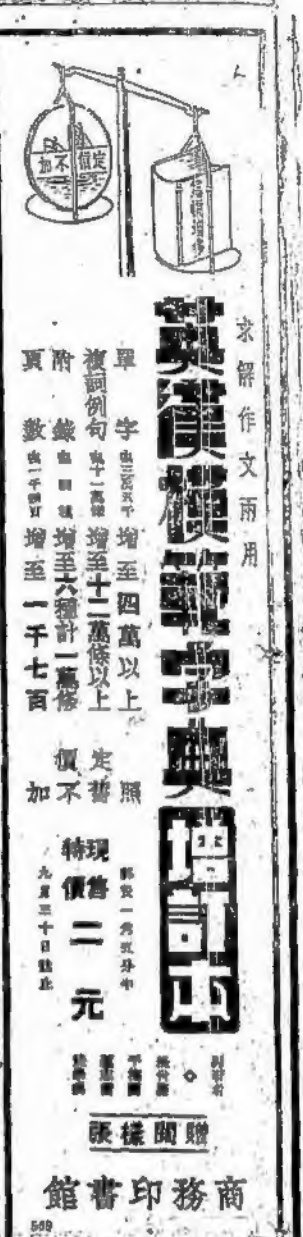 定價不加
求解作文兩用
英漢模範字典
增訂本
單字由三萬五千增至四萬以上
複詞例句由十一萬條增至十二萬條以上
附錄由四種增至六種計一萬條
頁數由一千四百增至一千七百
定價照舊不加
現售特價二元
郵費一角五分半
九月三十日截止
贈閱樣張
商務印書館
569